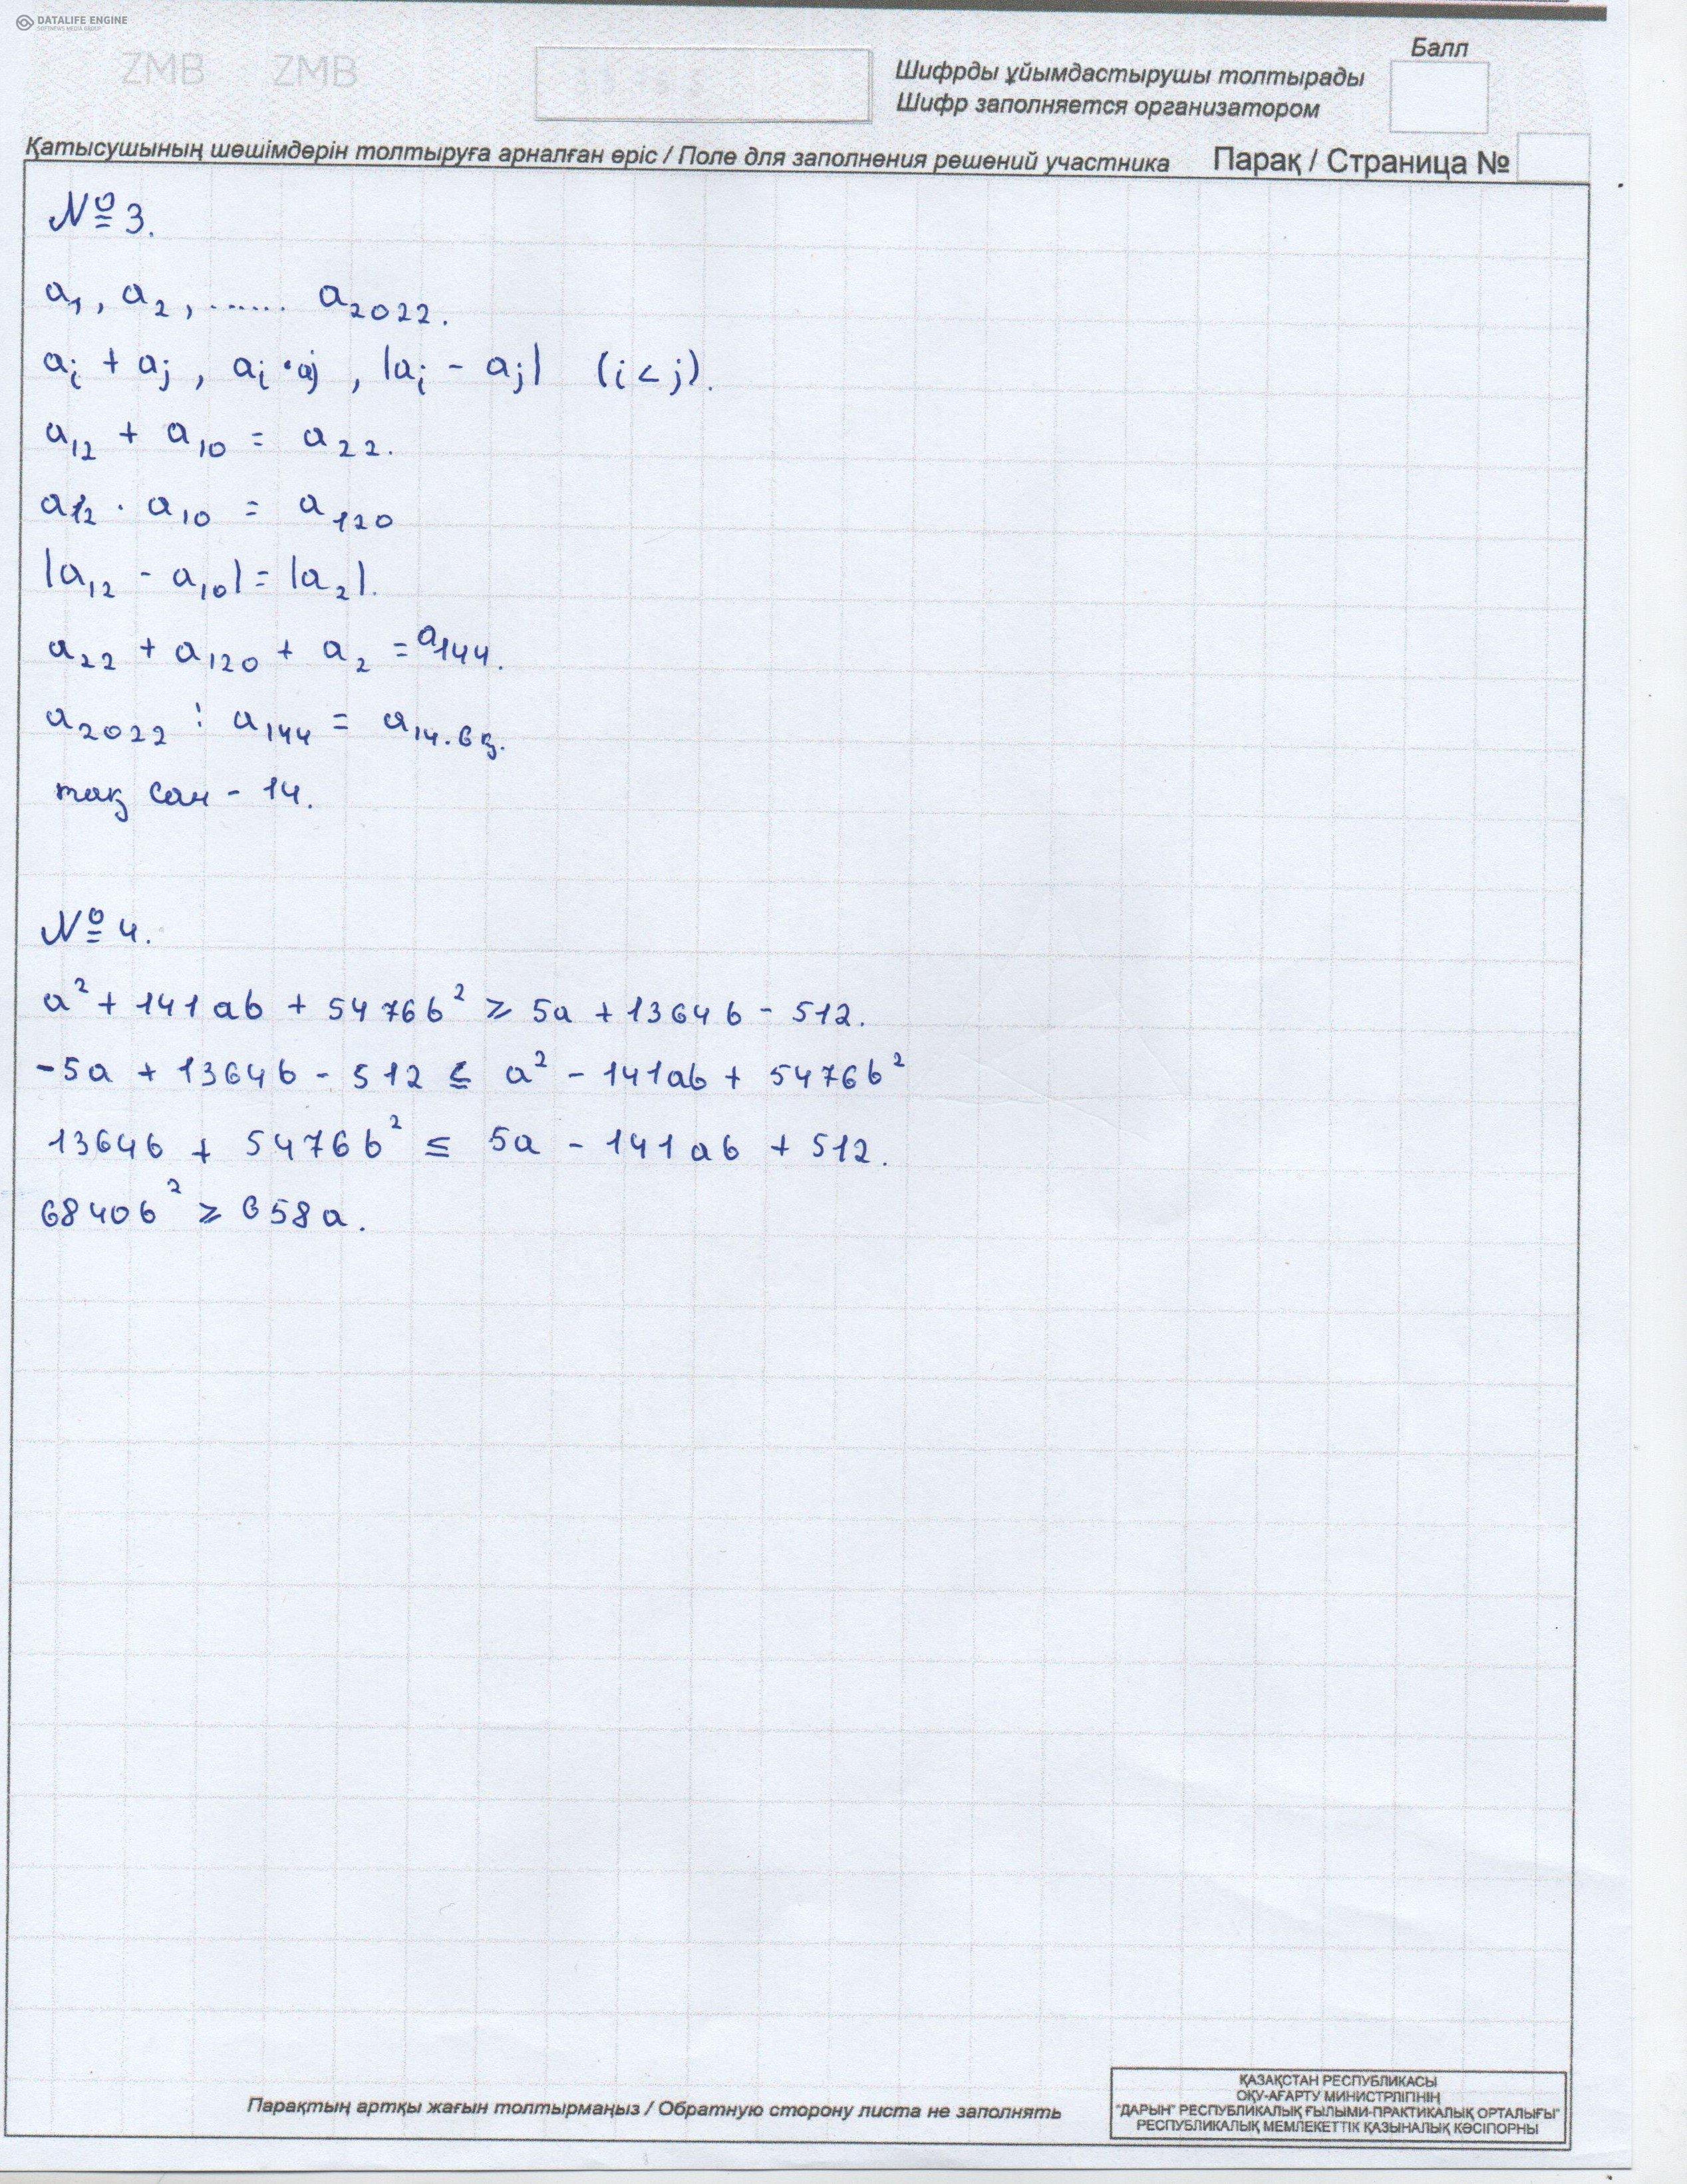 DATALIFE ENGINE
SOFTNEWS MEDIA GROUP
ZMB ZMB
Балл
Шифрды ұйымдастырушы толтырады
Шифр заполняется организатором
Қатысушының шешімдерін толтыруға арналған өріс / Поле для заполнения решений участника
Парақ / Страница №
№ 3.
a₁, a₂, ...... a₂₀₂₂.
aᵢ + aⱼ, aᵢ · aⱼ, |aᵢ - aⱼ| (i < j).
a₁₂ + a₁₀ = a₂₂.
a₁₂ · a₁₀ = a₁₂₀
|a₁₂ - a₁₀| = |a₂|.
a₂₂ + a₁₂₀ + a₂ = a₁₄₄.
a₂₀₂₂ : a₁₄₄ =
тақ сан - 14.
№ 4.
a² + 141ab + 5476b² ≥ 5a + 1364b - 512.
-5a + 1364b - 512 ≤ a² - 141ab + 5476b²
1364b + 5476b² ≤ 5a - 141ab + 512.
6840b² ≥ 658a.
Парақтың артқы жағын толтырмаңыз / Обратную сторону листа не заполнять
ҚАЗАҚСТАН РЕСПУБЛИКАСЫ
ОҚУ-АҒАРТУ МИНИСТРЛІГІНІҢ
"ДАРЫН" РЕСПУБЛИКАЛЫҚ ҒЫЛЫМИ-ПРАКТИКАЛЫҚ ОРТАЛЫҒЫ"
РЕСПУБЛИКАЛЫҚ МЕМЛЕКЕТТІК ҚАЗЫНАЛЫҚ КӘСІПОРНЫ